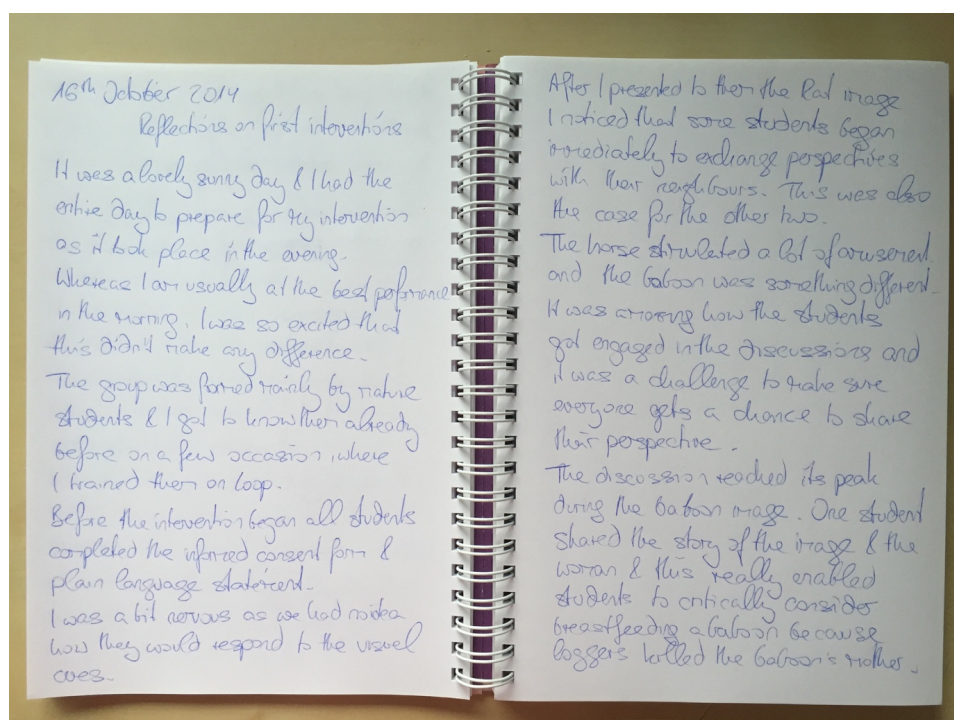 16th October 2014
Reflections on first interventions
It was a lovely sunny day & I had the
entire day to prepare for my intervention
as it took place in the evening.
Whereas I am usually at the best performance
in the morning, I was so excited that
this didn't make any difference.
The group was formed mainly by mature
students & I got to know them already
before on a few occasion, where
I trained them on Loop.
Before the intervention began all students
completed the informed consent form &
plain language statement.
I was a bit nervous as we had no idea
how they would respond to the visual
cues.
After I presented to them the Rat image
I noticed that some students began
immediately to exchange perspectives
with their neighbours. This was also
the case for the other two.
The horse stimulated a lot of amusement
and the baboon was something different.
It was amazing how the students
got engaged in the discussions and
it was a challenge to make sure
everyone gets a chance to share
their perspective.
The discussion reached its peak
during the baboon image. One student
shared the story of the image & the
woman & this really enabled
students to critically consider
breastfeeding a baboon because
loggers killed the baboon's mother.